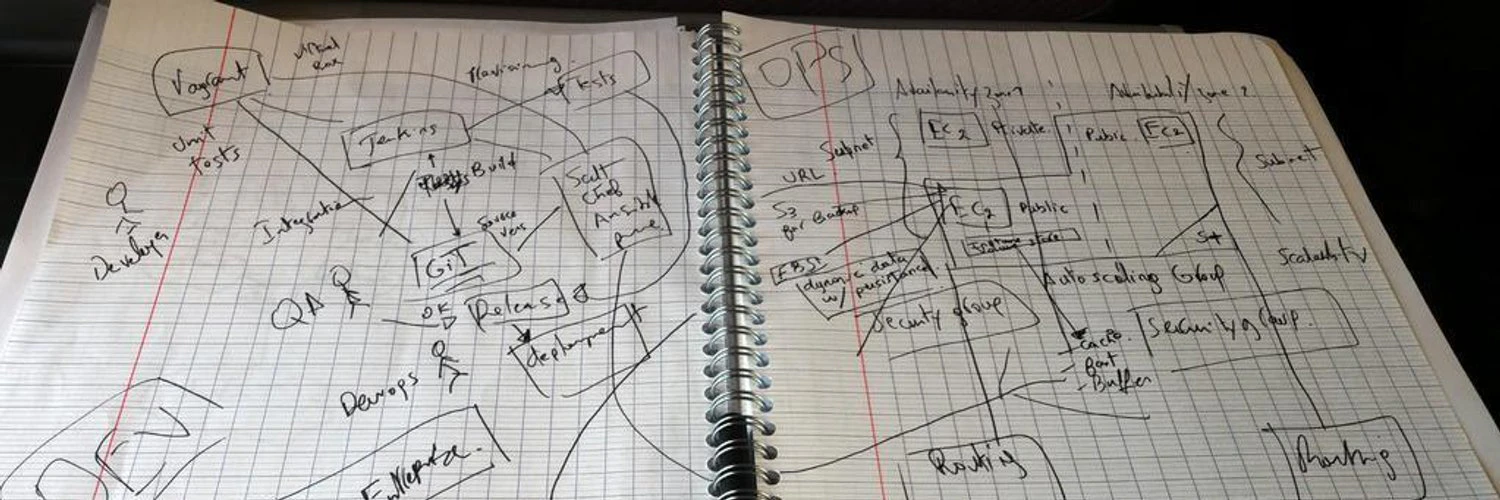 Vagrant
Virtual
Box
Unit
tests
Jenkins
Tests
Build
Integration
Salt
Chef
Ansible
GiT
Source
Vers
Developer
QA
OK
Release
deployment
Devops
DEV
OPS
Availability zone 1
Availability zone 2
Subnet
EC2 Private
Public EC2
Subnet
URL
S3
for Backup
EC2 Public
EBS:
dynamic data
w/ persistance
Auto scaling Group
Scalability
Security group
Security group
- Buffer
Routing
Routing